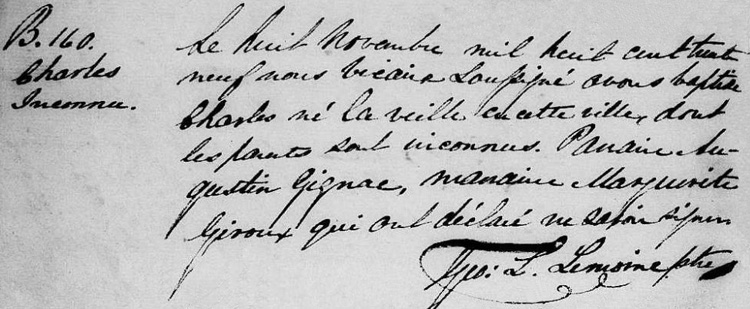 B. 160.
Charles
Inconnu.
Le huit Novembre mil huit cent trente
neuf nous vicaire soussigné avons baptisé
Charles né la veille en cette ville, dont
les parents sont inconnus. Parrain Au-
gustin Gignac, marraine Marguerite
Giroux qui ont déclaré ne savoir signer
Geo: L. Lemoine ptre